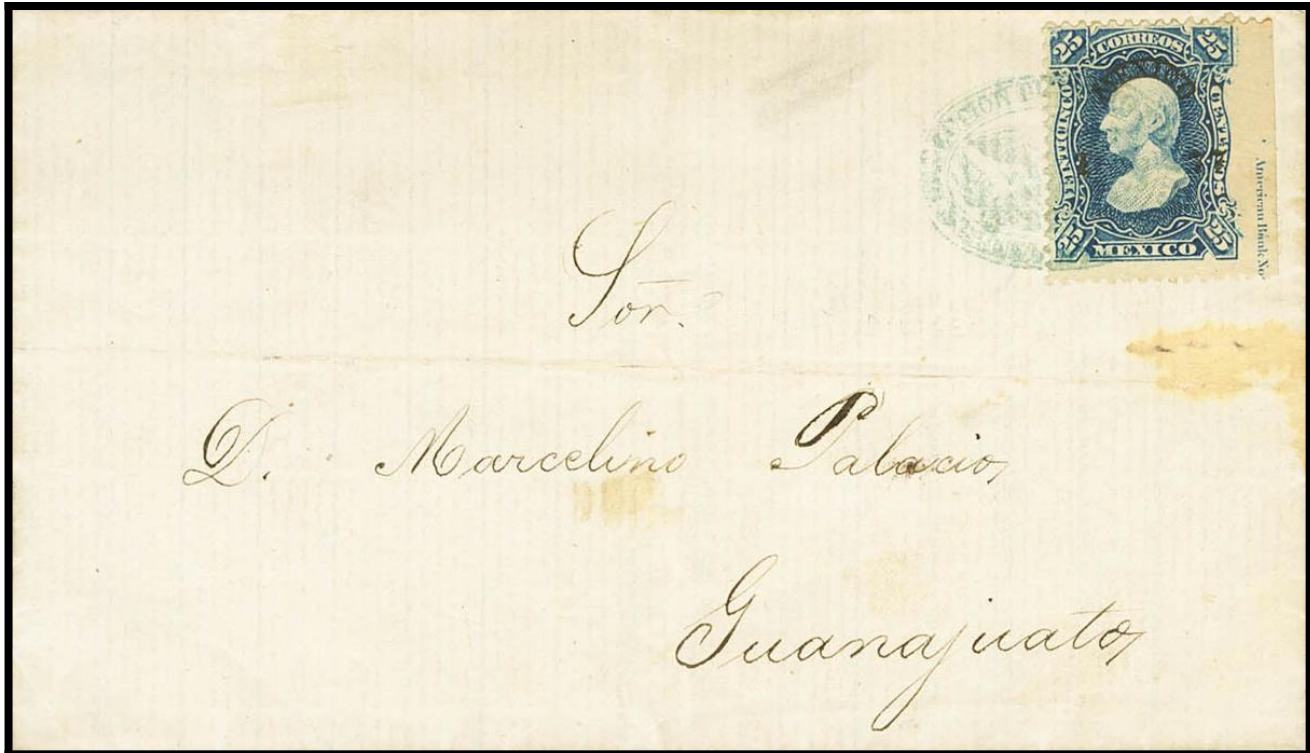 25 CORREOS 25
VEINTICINCO CENTAVOS
25 MEXICO 25
American Bank No
Sor.
D. Marcelino Palacio,
Guanajuato,